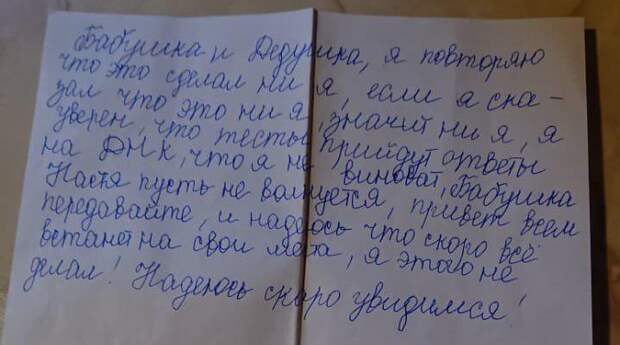 Бабушка и Дедушка, я повторяю
что это сделал ни я, если я ска-
зал что это ни я, значит ни я, я
уверен, что тесты прийдут ответы
на ДНК, что я не виноват, Бабушка
Настя пусть не волнуется, привет всем
передавайте, и надеюсь что скоро всё
встанет на свои места, я этого не
делал! Надеюсь скоро увидимся!